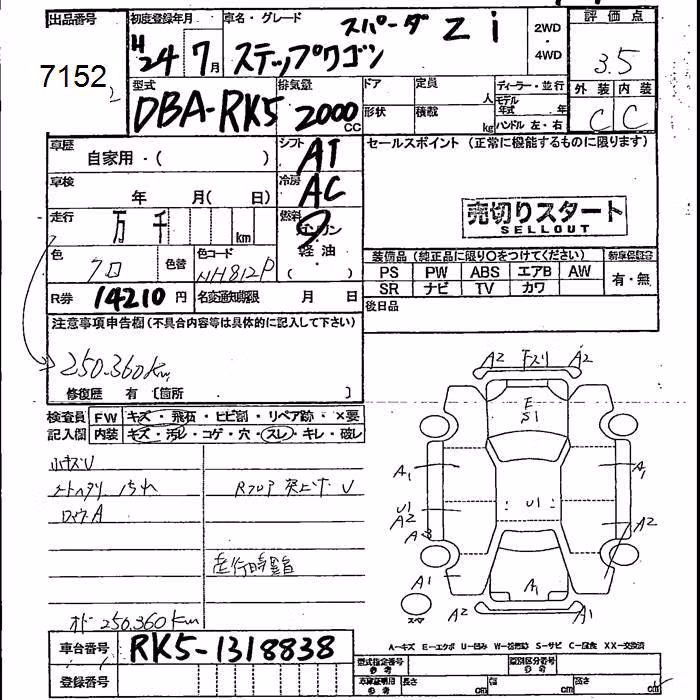 出品番号 初度登録年月 車名・グレード スパーダ Z i 2WD・4WD 評価点
7152 H24 7月 ステップワゴン 3.5
型式 排気量 ドア 定員 人 ディーラー・並行 外装 内装
DBA-RK5 2000CC 形状 積載 kg モデル年式 年 ハンドル 左・右 C C
車歴 シフト AT セールスポイント (正常に機能するものに限ります)
自家用・( )
車検 冷房 AC
年 月( 日)
売切りスタート
SELLOUT
走行 万 千 km 燃料 ガソリン
軽油
( )
色 クロ 色替 色コード NH812P
装備品 (純正品に限り〇をつけてください) 新車保証書
PS PW ABS エアB AW 有・無
SR ナビ TV カワ
R券 14210円 名変通知期限 月 日
後日品
注意事項申告欄(不具合内容等は具体的に記入して下さい)
250.360km
修復歴 有 〔箇所 〕
検査員 FW キズ・飛石・ヒビ割・リペア跡・×要
記入欄 内装 キズ・汚レ・コゲ・穴・スレ・キレ・破レ
小キズU
シートヘタリ 汚れ Rフロア 突上ゲ U
走行時異音
250.360km
A2 Fスリ A2
E
S1
A1 A1
U1 U1
A2 A2
A3
A1 A1
A2 A2
スペア
A-キズ E-エクボ U-凹み W-波 S-サビ C-腐食 XX-交換済
車台番号 RK5-1318838
登録番号
型式指定番号 類別区分番号
長さ cm 幅 cm 高さ cm